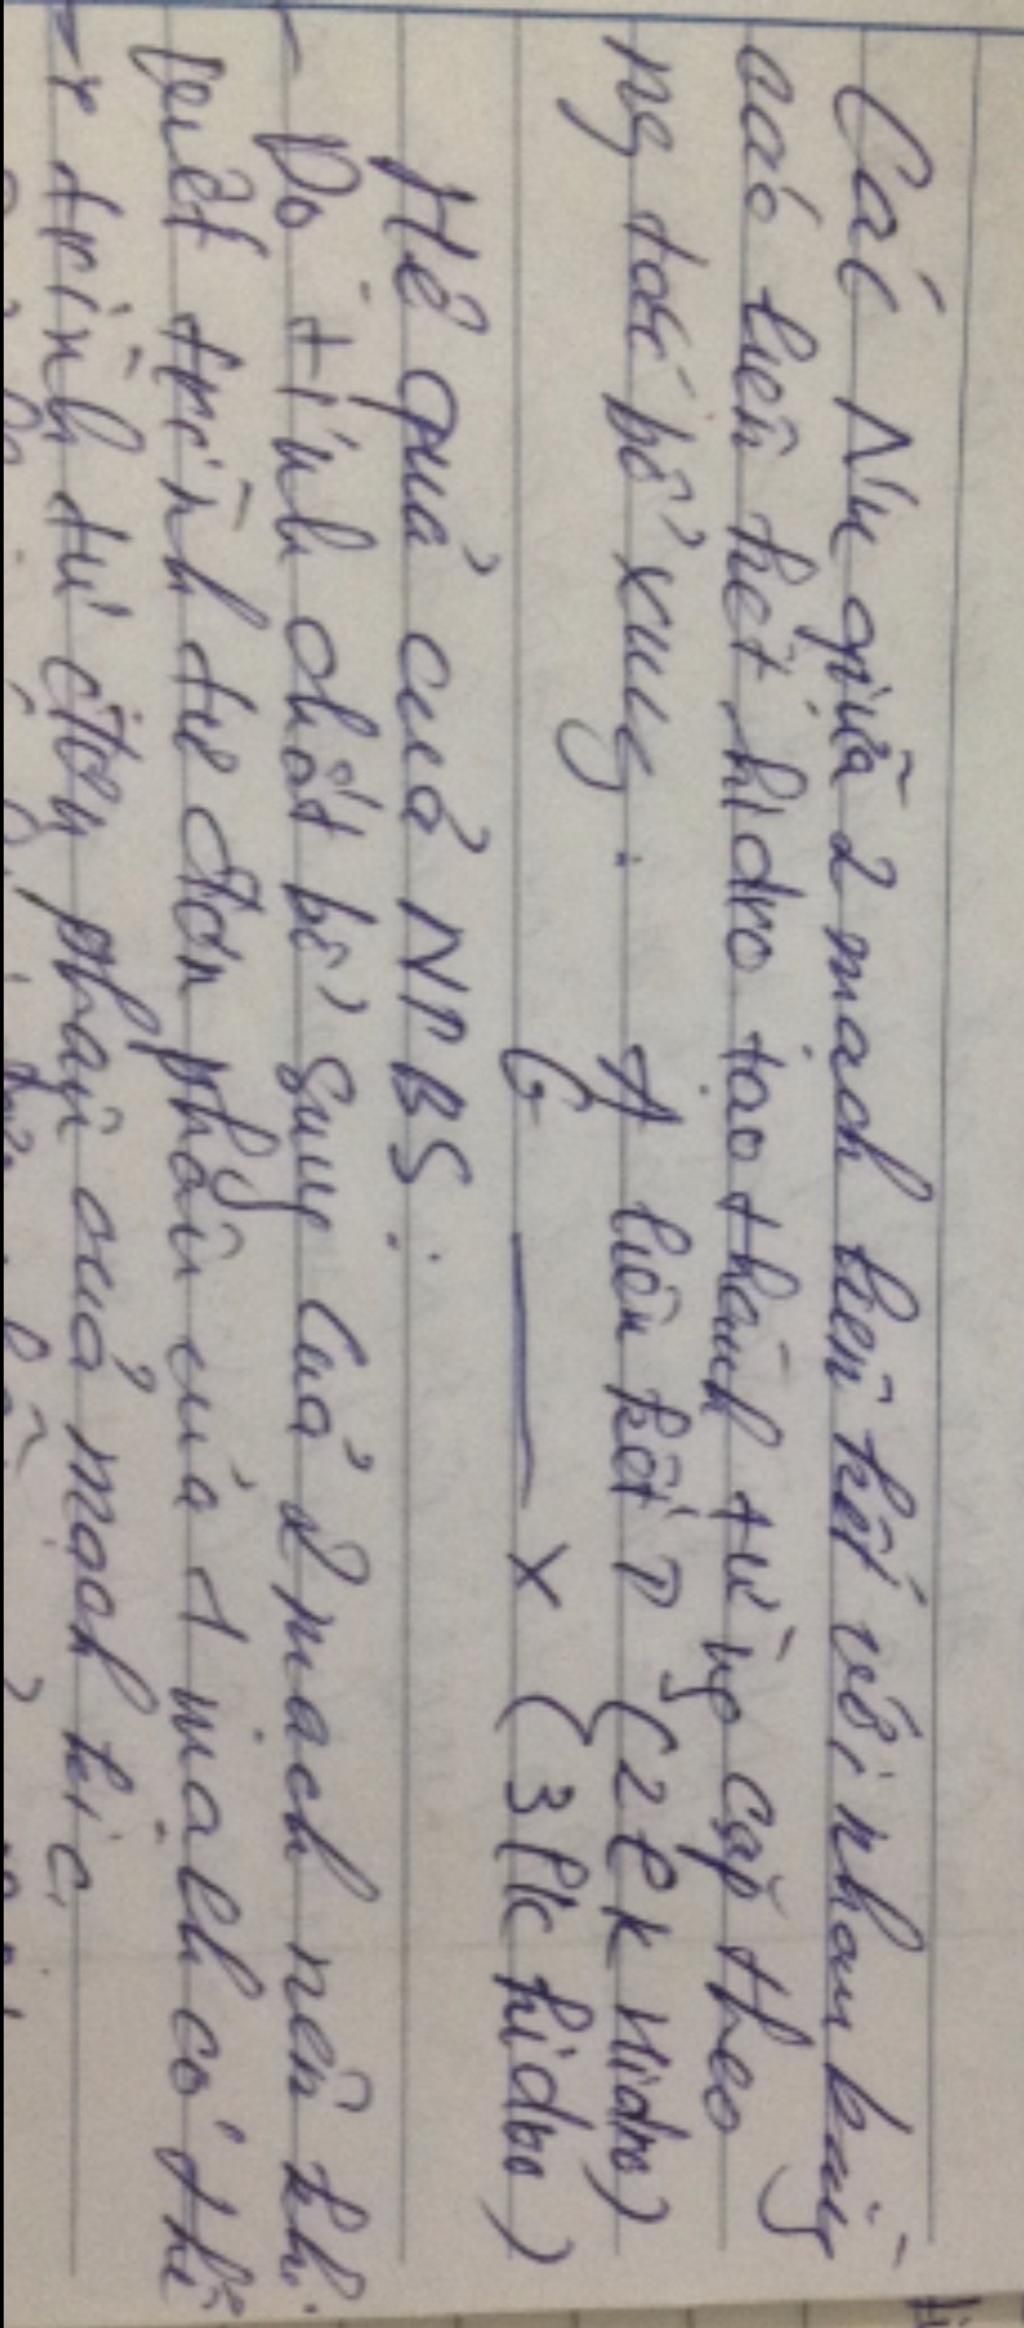 Các Nu giữa 2 mạch liên kết với nhau bằng
các liên kết hidro tạo thành từng cặp theo
ng tắc bổ xung. A liên kết T (2 lk hidro)
G — X (3 lk hidro)
Hệ quả của NTBS:
- Do tính chất bổ sung của 2 mạch nên khi
biết trình tự đơn phân của 1 mạch có thể
trình tự đơn phân của mạch kia